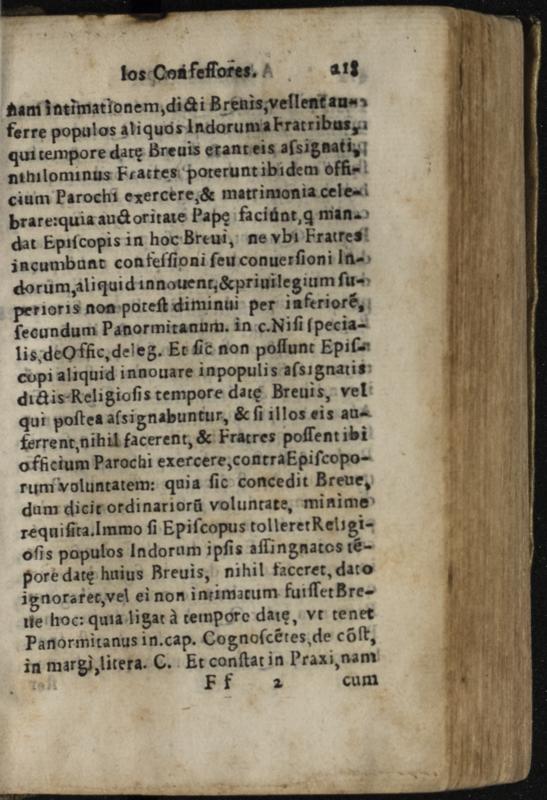 los Confeſſores. 218
nam intimationem, dicti Breuis, vellent au-
ferre populos aliquos Indorum a Fratribus,
qui tempore datę Breuis erant eis aſsignati,
nihilominus Fratres poterunt ibidem offi-
cium Parochi exercere, & matrimonia cele-
brare: quia auctoritate Papę faciunt, q man-
dat Epiſcopis in hoc Breui, ne vbi Fratres
incumbunt confeſsioni ſeu conuerſioni In-
dorum, aliquid innouent, & priuilegium ſu-
perioris non poteſt diminui per inferiorẽ,
ſecundum Panormitanum. in c. Niſi ſpecia-
lis, de Offic, deleg. Et ſic non poſſunt Epiſ-
copi aliquid innouare in populis aſsignatis
dictis Religioſis tempore datę Breuis, vel
qui poſtea aſsignabuntur, & ſi illos eis au-
ferrent, nihil facerent, & Fratres poſſent ibi
officium Parochi exercere, contra Epiſcopo-
rum voluntatem: quia ſic concedit Breue,
dum dicit ordinariorũ voluntate, minime
requiſita. Immo ſi Epiſcopus tolleret Religi-
oſis populos Indorum ipſis aſſingnatos tẽ-
pore datę huius Breuis, nihil faceret, dato
ignoraret, vel ei non intimatum fuiſſet Bre-
ue hoc: quia ligat à tempore datę, vt tenet
Panormitanus in. cap. Cognoſcẽtes, de cõſt,
in margi, litera. C. Et conſtat in Praxi, nam
F f 2 cum